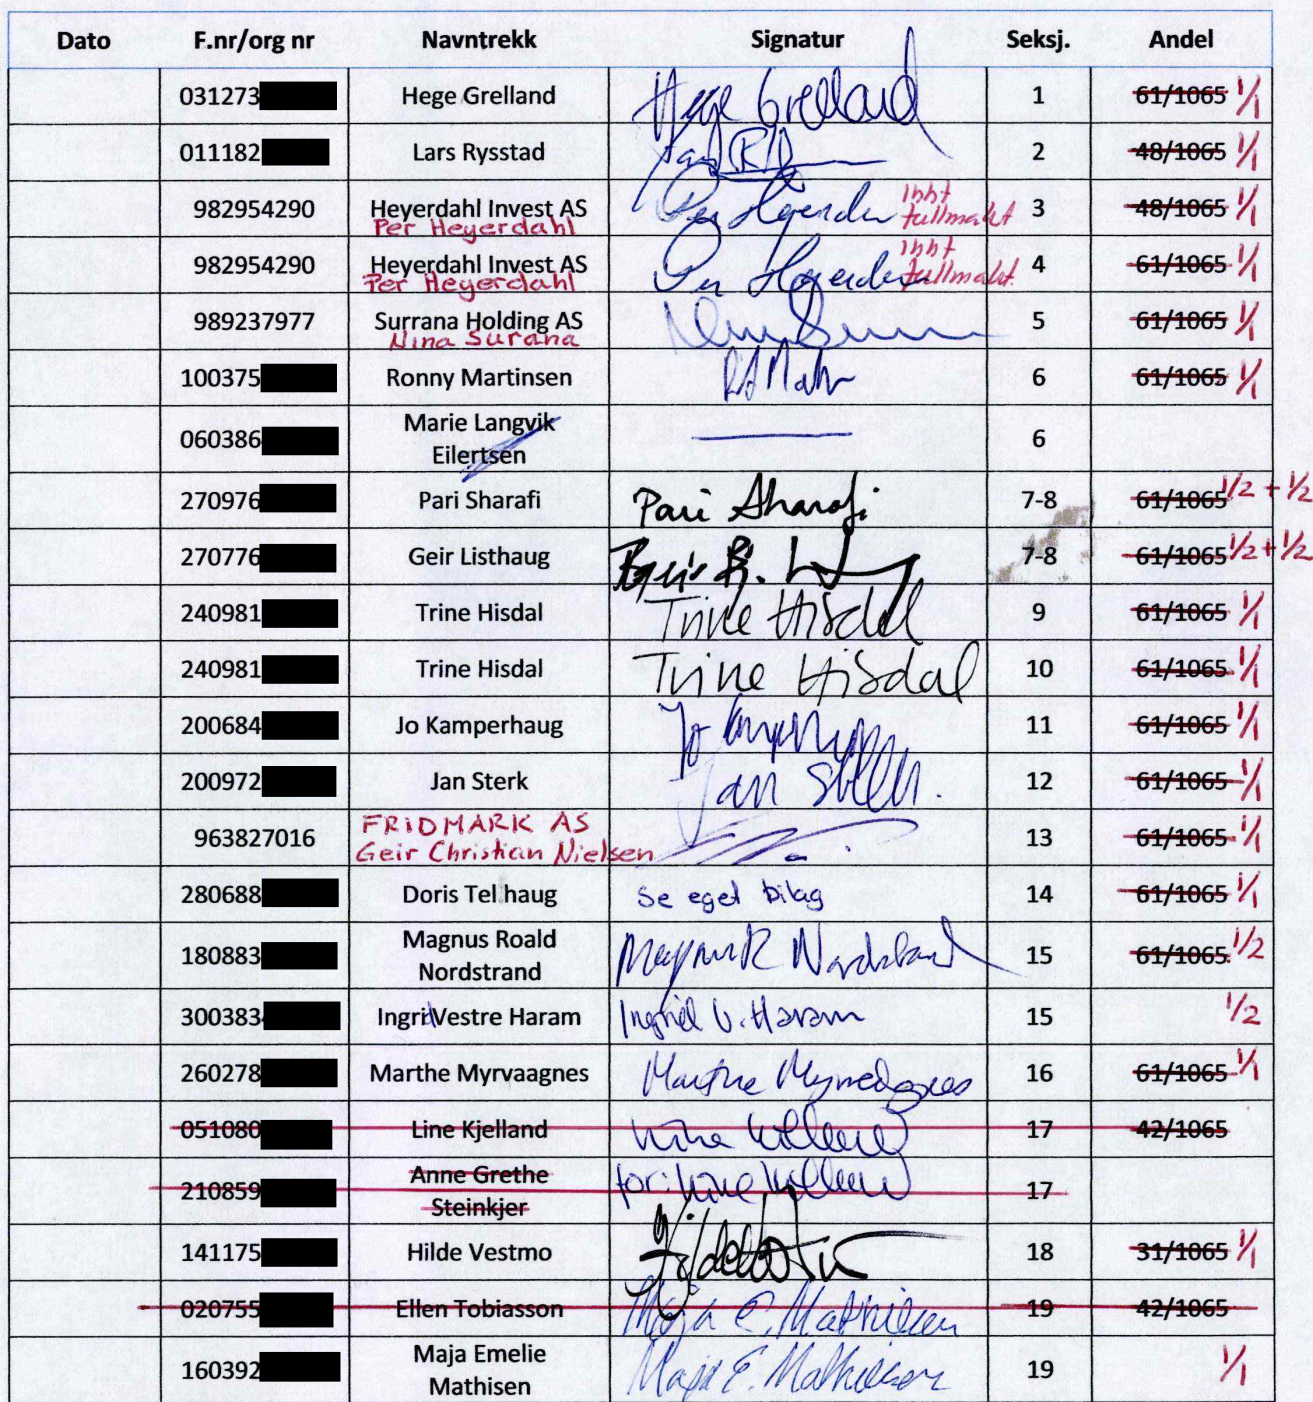 Dato F.nr/org nr Navntrekk Signatur Seksj. Andel
031273 Hege Grelland Hege Grelland 1 61/1065 1/1
011182 Lars Rysstad 2 48/1065 1/1
982954290 Heyerdahl Invest AS ihht 3 48/1065 1/1
Per Heyerdahl fullmakt
982954290 Heyerdahl Invest AS ihht 4 61/1065 1/1
Per Heyerdahl fullmakt
989237977 Surrana Holding AS 5 61/1065 1/1
Nina Surana
100375 Ronny Martinsen 6 61/1065 1/1
060386 Marie Langvik 6
Eilertsen
270976 Pari Sharafi Pari Sharafi 7-8 61/1065 1/2 + 1/2
270776 Geir Listhaug 7-8 61/1065 1/2 + 1/2
240981 Trine Hisdal Trine Hisdal 9 61/1065 1/1
240981 Trine Hisdal Trine Hisdal 10 61/1065 1/1
200684 Jo Kamperhaug 11 61/1065 1/1
200972 Jan Sterk Jan 12 61/1065 1/1
963827016 FRIDMARK AS 13 61/1065 1/1
Geir Christian Nielsen
280688 Doris Telhaug Se eget bilag 14 61/1065 1/1
180883 Magnus Roald Magnus R Nordstrand 15 61/1065 1/2
Nordstrand
300383 Ingrid Vestre Haram Ingrid V. Haram 15 1/2
260278 Marthe Myrvaagnes Marthe Myrvaagnes 16 61/1065 1/1
051080 Line Kjelland 17 42/1065
210859 Anne Grethe for: 17
Steinkjer
141175 Hilde Vestmo 18 31/1065 1/1
020755 Ellen Tobiasson Maja E. Mathisen 19 42/1065
160392 Maja Emelie Maja E. Mathisen 19 1/1
Mathisen